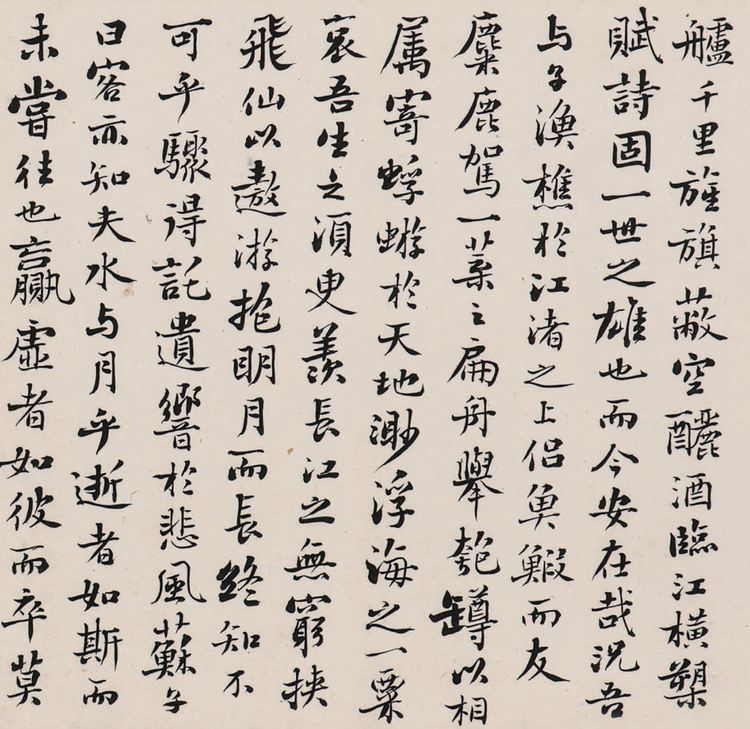 艫千里旌旗蔽空釃酒臨江橫槊
賦詩固一世之雄也而今安在哉況吾
与子漁樵於江渚之上侶魚鰕而友
麋鹿駕一葉之扁舟舉匏罇以相
属寄蜉蝣於天地渺浮海之一粟
哀吾生之湏臾羨長江之無窮挾
飛仙以遨游抱明月而長終知不
可乎驟得託遺響於悲風蘇子
曰客亦知夫水与月乎逝者如斯而
未嘗往也贏虛者如彼而卒莫